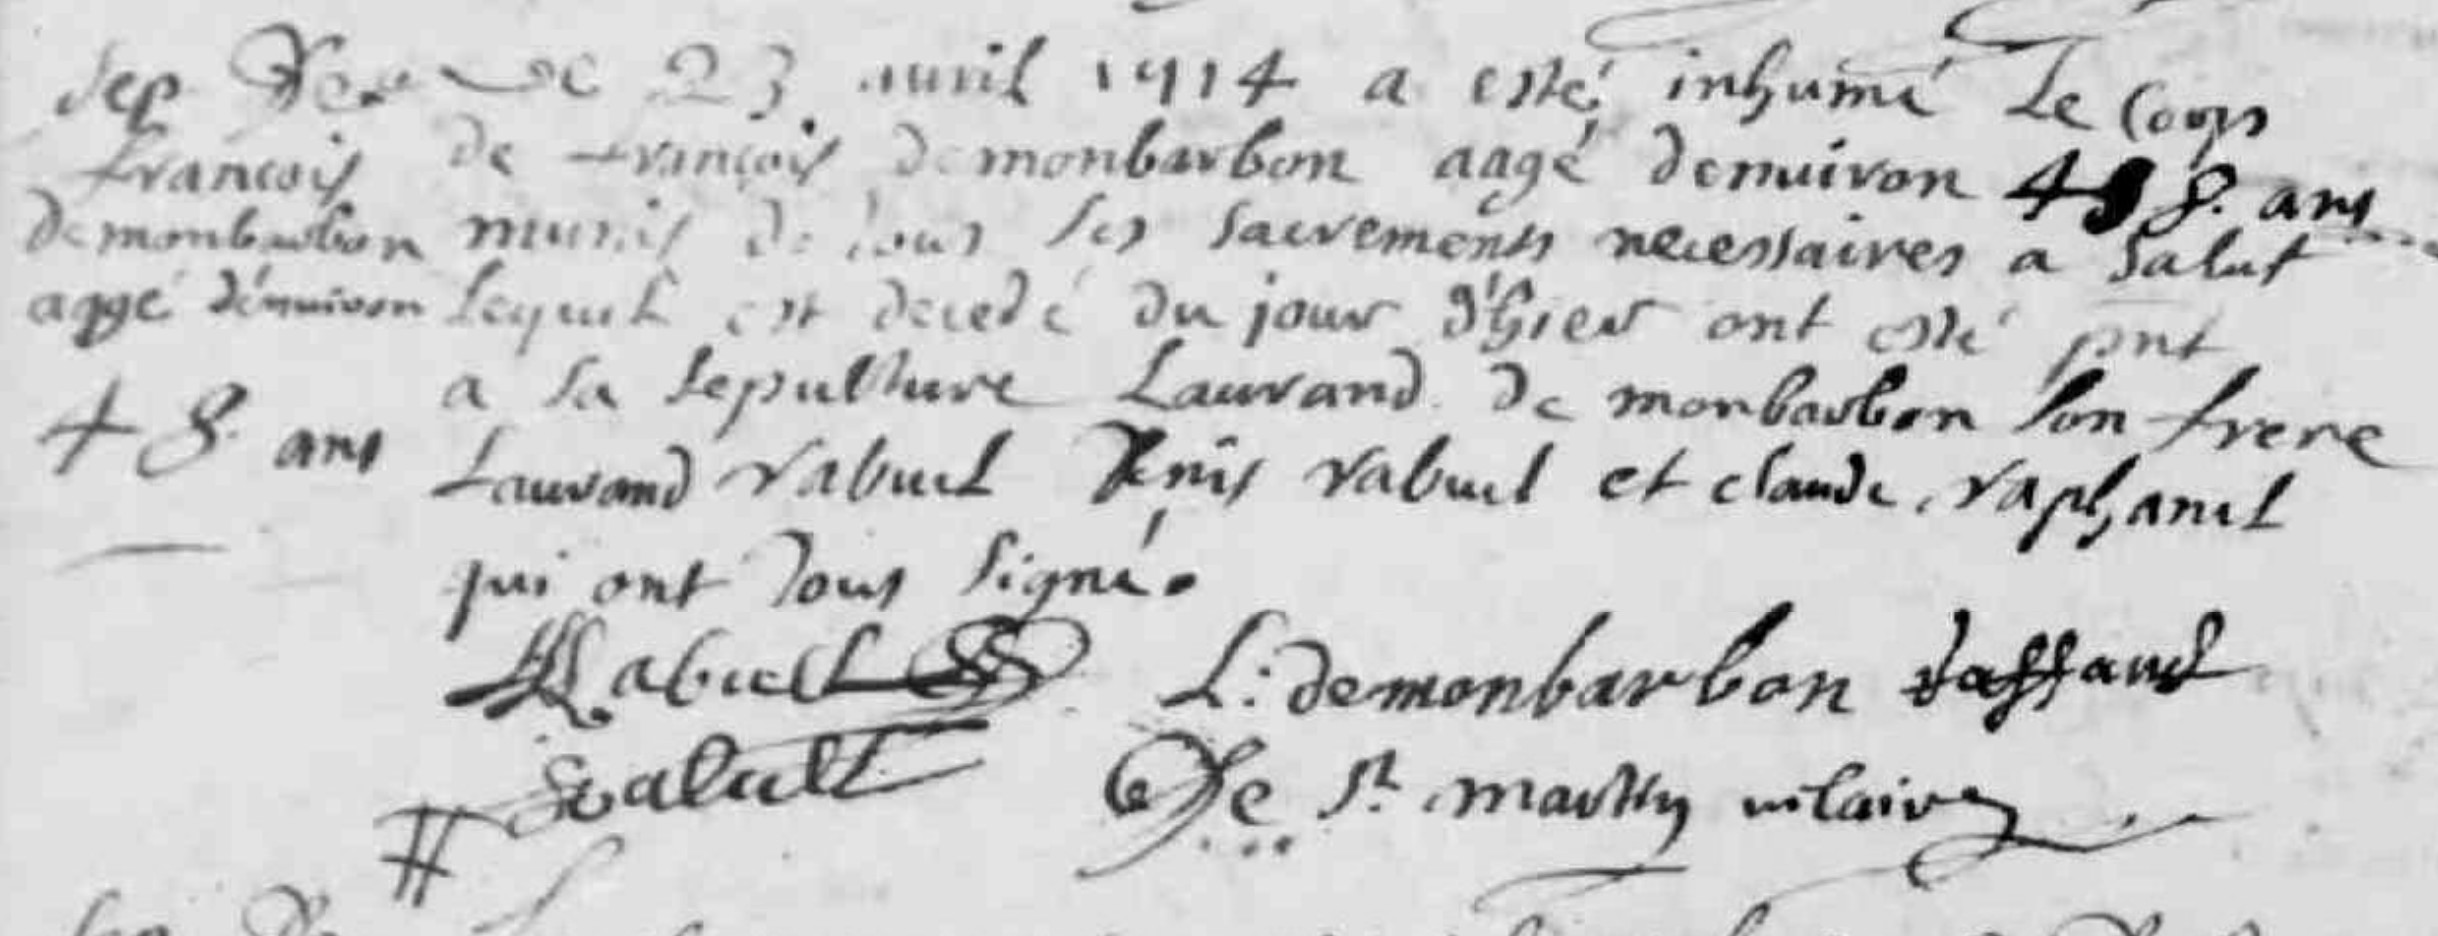 sep De Le 23 avril 1714 a esté inhumé Le Corps
francois de françois demonbarbon aagé denuiron 48 8. ans
demonbarbon munis de tous ses sacrements necessaires a salut
aagé dénuiron Lequel est decedé du jour d'hier ont esté pnt
a sa sepulture Laurand de monbarbon son frere
48. ans Laurand rabuel Denis rabuel et claude raphanel
qui ont tous signé.
Rabuel L: demonbarbon raffanel
Rabuel De St. marthy vicaire